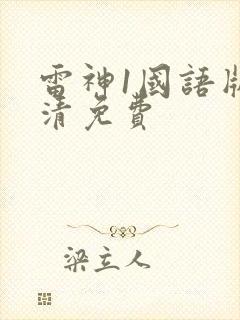 雷神1國語版
清免費
梁立人